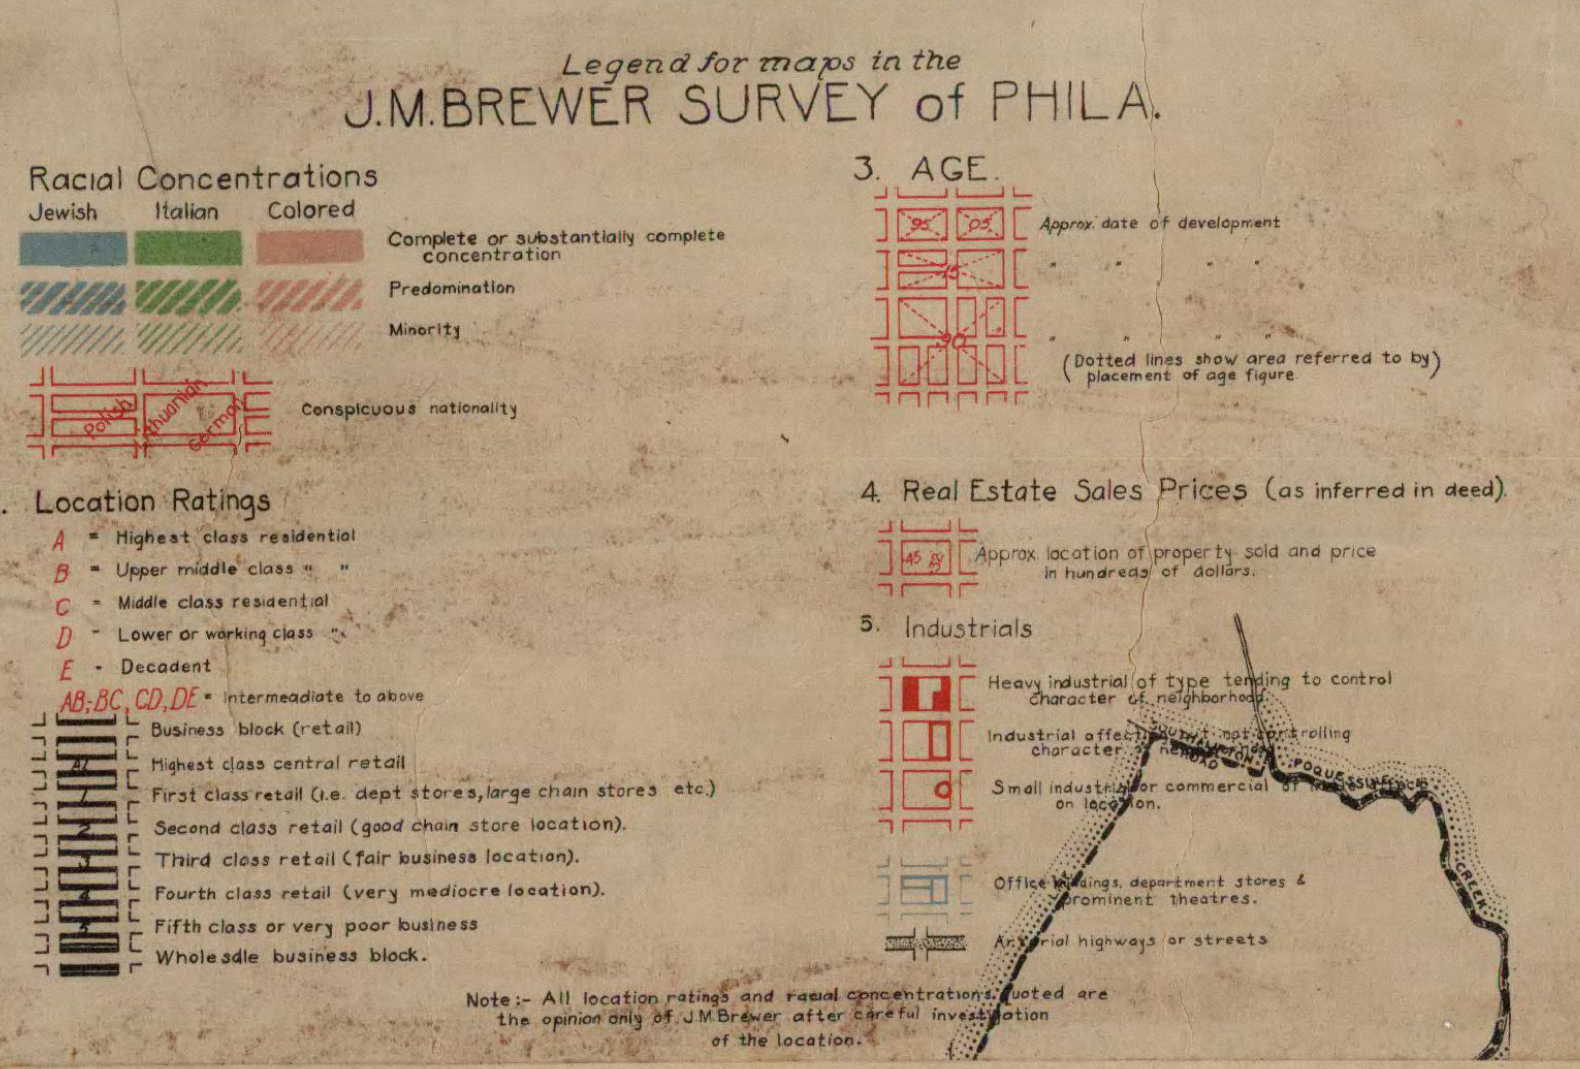 Legend for maps in the
J.M. BREWER SURVEY of PHILA.
Racial Concentrations
Jewish Italian Colored
Complete or substantially complete
concentration
Predomination
Minority
Polish Lithuanian German
Conspicuous nationality
. Location Ratings
A = Highest class residential
B = Upper middle class " "
C = Middle class residential
D - Lower or working class "
E - Decadent
AB; BC, CD, DE = Intermeadiate to above
Business block (retail)
A1 Highest class central retail
1 First class retail (i.e. dept stores, large chain stores etc.)
2 Second class retail (good chain store location).
3 Third class retail (fair business location).
4 Fourth class retail (very mediocre location).
5 Fifth class or very poor business
Wholesale business block.
3. AGE.
95 05 Approx. date of development
15 " " " "
90 " " " "
(Dotted lines show area referred to by)
placement of age figure
4. Real Estate Sales Prices (as inferred in deed).
45 Approx. location of property sold and price
in hundreds of dollars.
5. Industrials
Heavy industrial of type tending to control
character of neighborhood.
Industrial affecting but not controlling
character of neighborhood
Small industrial or commercial of
on location.
ROAD
POQUESSING
CREEK
Office buildings, department stores &
prominent theatres.
Arterial highways or streets
Note:- All location ratings and racial concentrations quoted are
the opinion only of J.M Brewer after careful investigation
of the location.